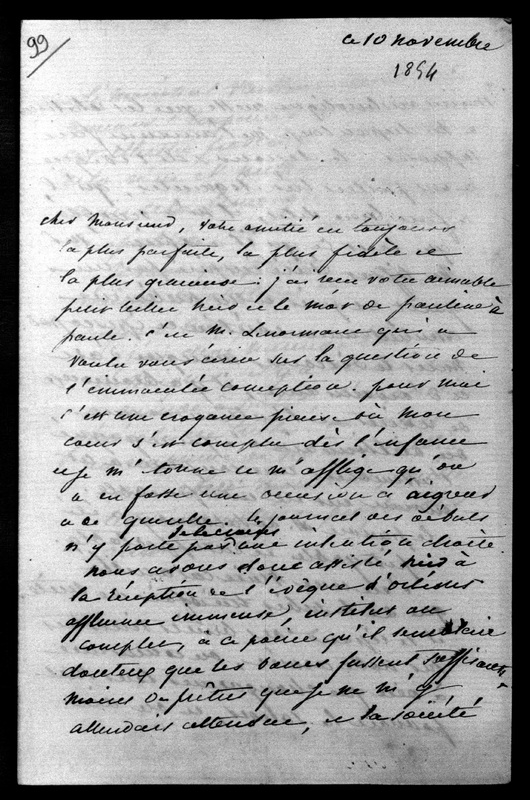 99
ce 10 novembre
1854
cher Monsieur, votre amitié est toujours
la plus parfaite, la plus fidèle et
la plus gracieuse. j'ai reçu votre aimable
petit billet hier et le mot de pauline à
paule. c'est M. Lenormant qui a
voulu vous écrire sur la question de
l'immaculée conception. pour moi
c'est une croyance pieuse où mon
coeur s'est complu dès l'enfance
et je m'étonne et m'afflige qu'on
en fasse une occasion d'aigreur
et de querelle. le journal des débats
n'y porte pas une intention droite
nous avons donc assisté hier à
la réception de l'évêque d'orléans
affluence immense, institut au
complet, à ce point qu'il semblait
douteux que les bancs fussent suffisants
moins de prêtres que je ne m'y
attendais, et la société